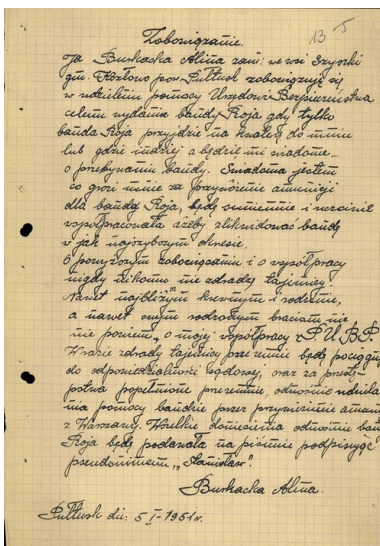 13 5
Zobowiązanie.
Ja Burkacka Alina zam: we wsi Szyszki
gm. Kozłowo pow. Pułtusk zobowiązuję się
w udzieleniu pomocy Urzędowi Bezpieczeństwa
celem wydania bandy Roja gdy tylko
banda Roja przyjdzie na kwaterę do mnie
lub gdzie indziej a będzie mi wiadome
o przebywaniu bandy. Świadoma jestem
co grozi mnie za przywóz amunicji
dla bandy Roja, będę sumiennie i uczciwie
współpracowała ażeby zlikwidować bandę
w jak najszybszym okresie.
O powyższym zobowiązaniu i o współpracy
nigdy nikomu nie zdradzę tajemnicy
Nawet najbliższym krewnym i rodzinie,
a nawet swym rodzonym braciom nie
nie powiem, o mojej współpracy z P.U.B.P.
W razie zdrady tajemnicy przezemnie będę pociągn
do odpowiedzialności sądowej, oraz za przestę
pstwa popełnione przezemnie, odnośnie udziela
nia pomocy bandzie przez przywożenie amuni
z Warszawy. Wszelkie doniesienia odnośnie ban
Roja będę podawała na piśmie podpisując
pseudonimem „Stanisław".
Burkacka Alina.
Pułtusk dn: 5 I-1951r.